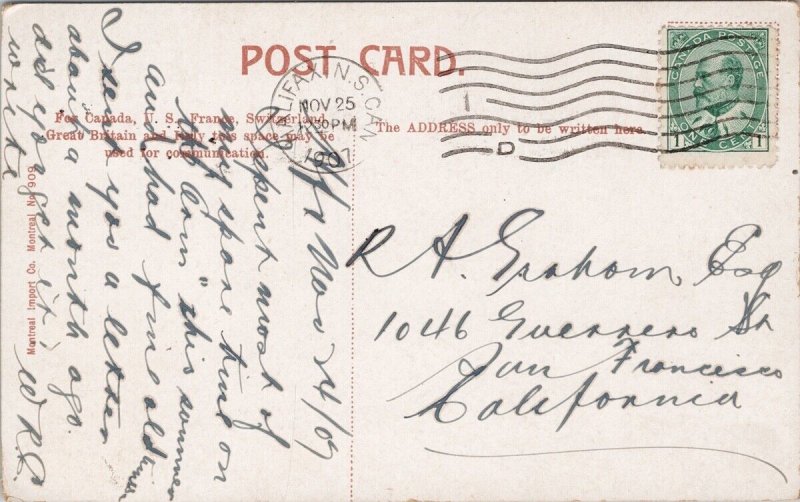 POST CARD.
For Canada, U. S., France, Switzerland,
Great Britain and Italy this space may be
used for communication.
The ADDRESS only to be written here.
HALIFAX N.S. CAN
NOV 25
PM
1907
1
D
CANADA POSTAGE
ONE CENT
1 1
Montreal Import Co. Montreal No 909
Hx Nov 24/07
I spent most of
my spare time on
this summer
and had fine old times
I sent you a letter
about a month ago.
did you get it.
write
R. A. Graham, Esq
1046 Guerrero St
San Francisco
California